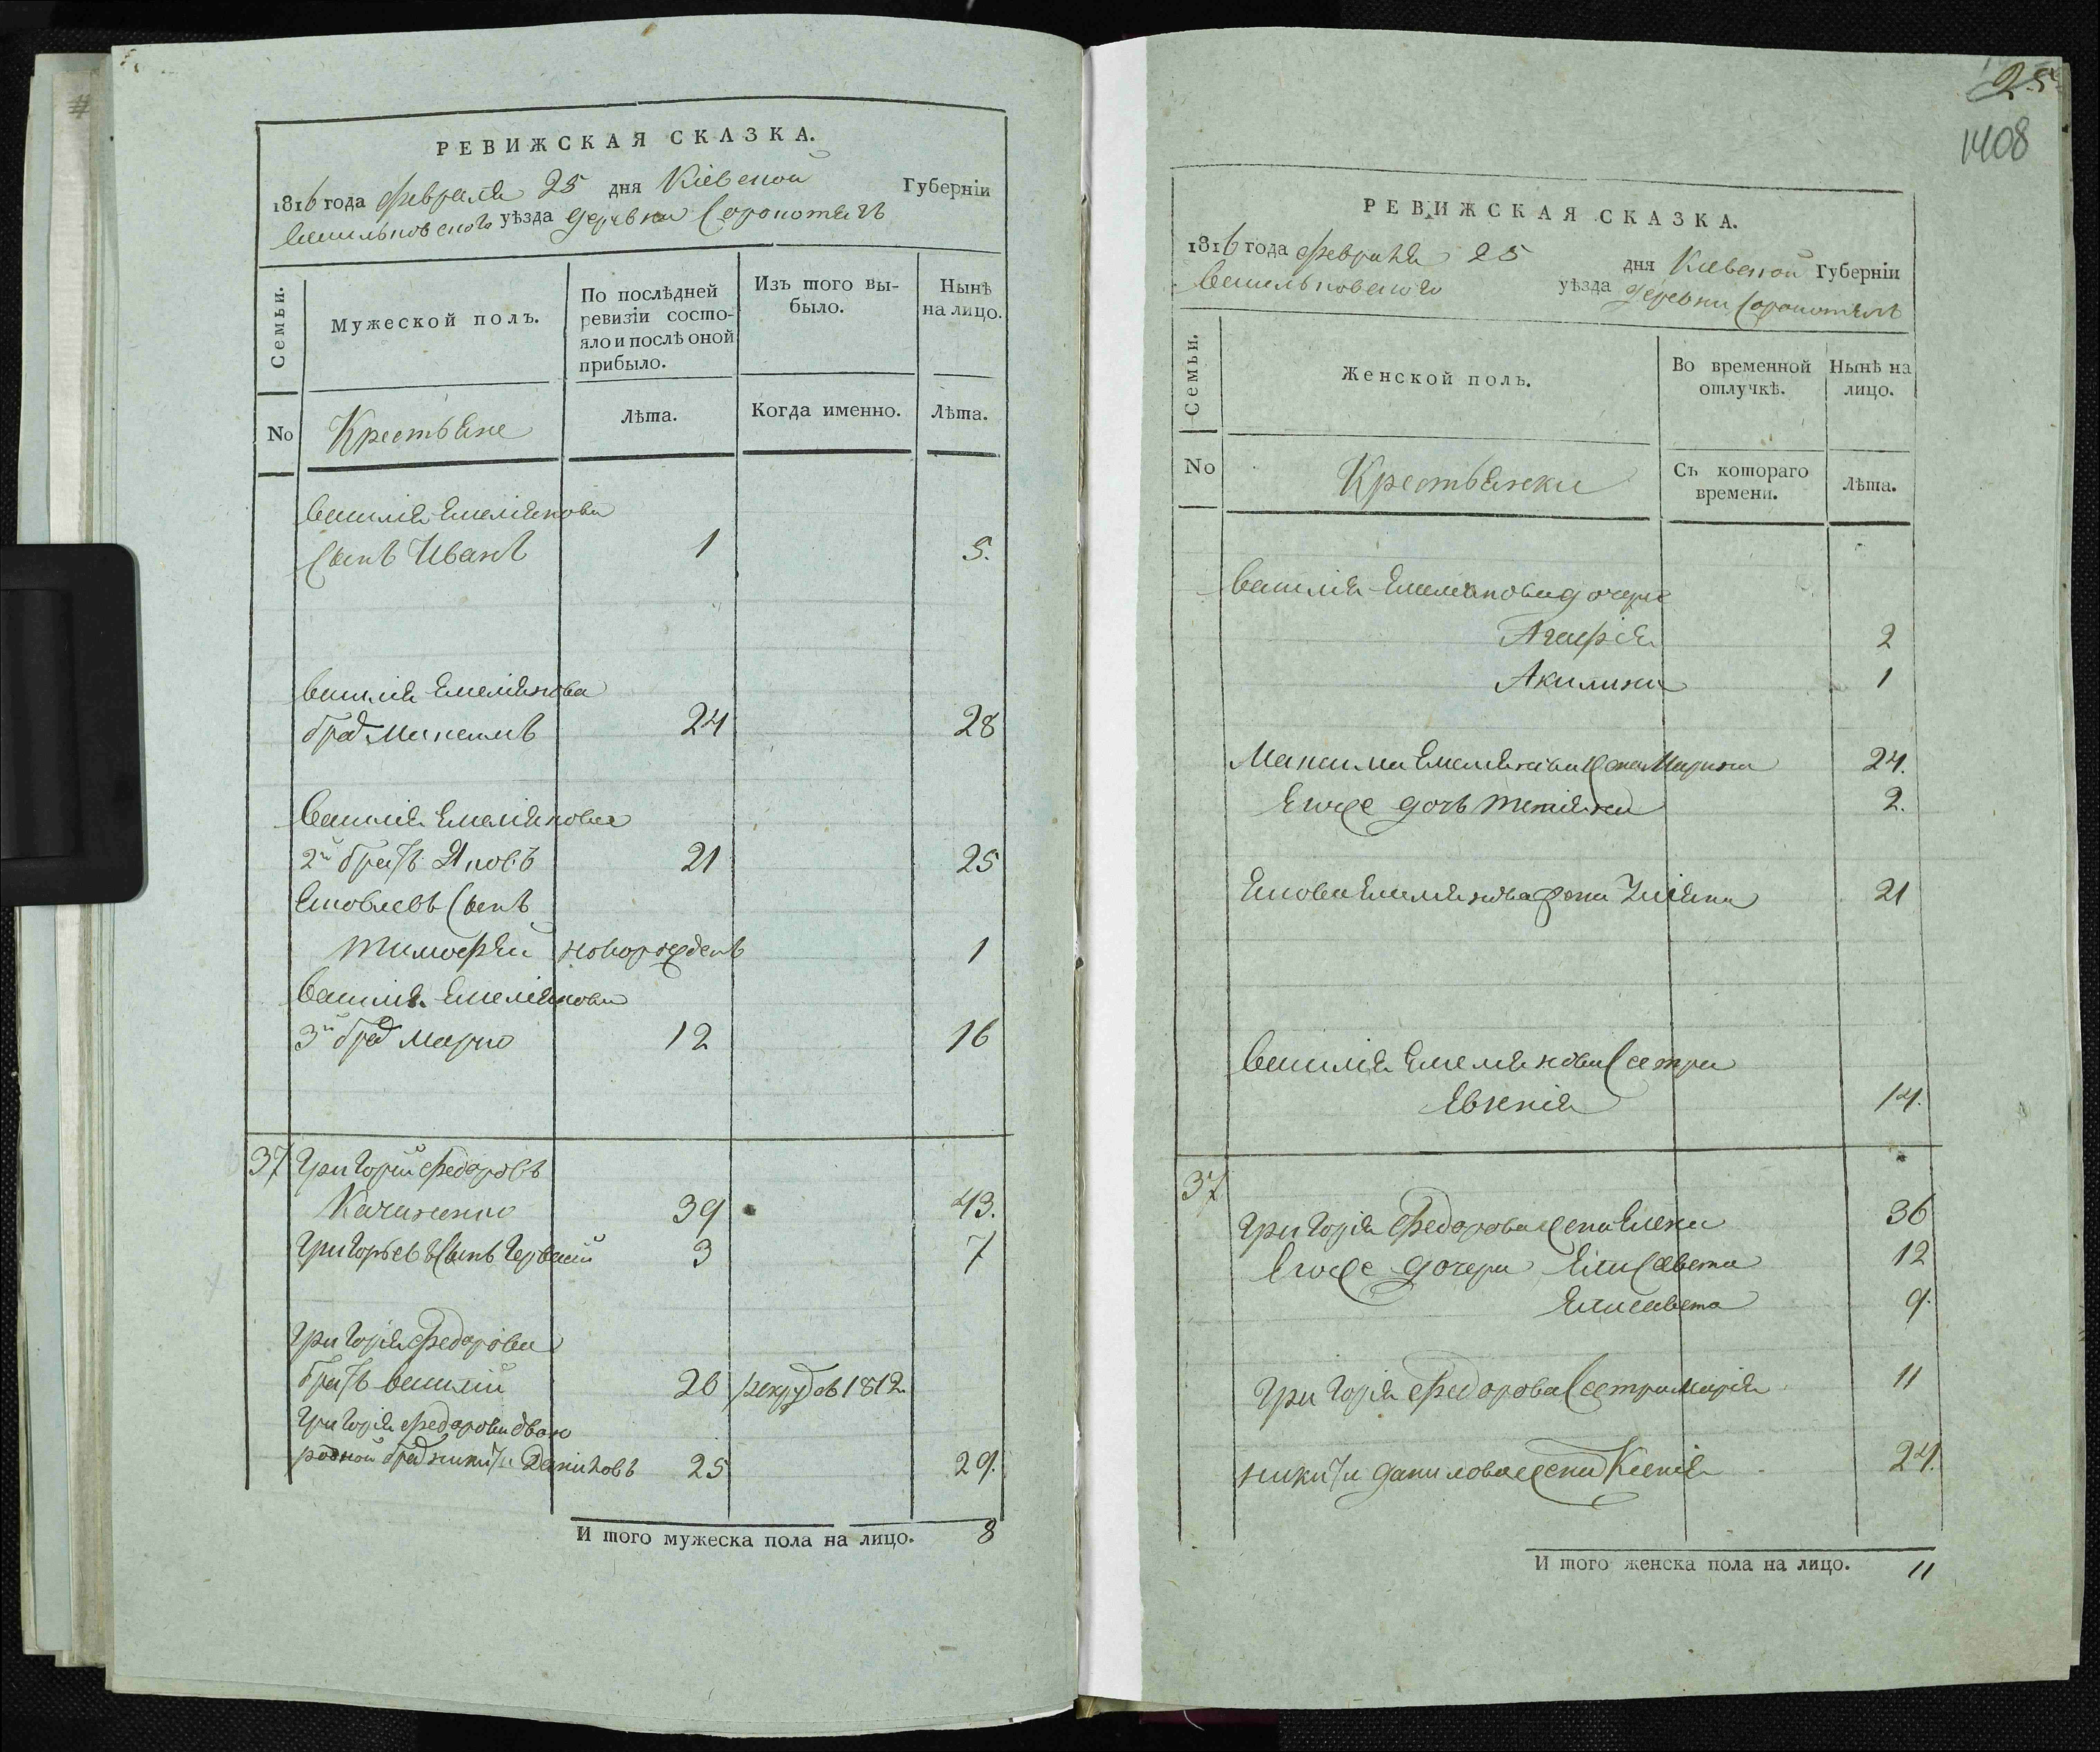 РЕВИЖСКАЯ СКАЗКА.
1816 года февраля 25 дня Кіевской Губерніи
Васильковского уѣзда деревни Соропотягъ
Семьи.
Мужеской полъ.
По послѣдней ревизіи состояло и послѣ оной прибыло.
Изъ того выбыло.
Нынѣ на лицо.
No
Крестьяне
Лѣта.
Когда именно.
Лѣта.
Василія Емеліянова
Сынъ Иванъ 1 5.
Василія Емеліянова
брат Максимъ 24 28
Василія Емеліянова
2й братъ Яковъ 21 25
Яковлевъ Сынъ
Тимофѣй новорожденъ 1
Василія Емеліянова
3й брат Марко 12 16
37 Григорій Федоровъ
39 43.
Григорьевъ Сынъ Герва́сій 3 7
Григорія Федорова
братъ Василій 26 рекрутов 1812.
Григорія Федорова двою
родной брат Никита Даниловъ 25 29.
И того мужеска пола на лицо. 8
25
1408
РЕВИЖСКАЯ СКАЗКА.
1816 года февраля 25 дня Кіевской Губерніи
Васильковского уѣзда деревни Соропотягъ
Семьи.
Женской полъ.
Во временной отлучкѣ.
Нынѣ на лицо.
No
Крестьянки
Съ котораго времени.
Лѣта.
Василія Емелянова дочере
Агафія 2
Акилина 1
Максима Емеліянова жена Марина 24.
Егоже дочь Татіяна 2.
Якова Емеліянова жена Уліяна 21
Василія Емелянова Сестра
Евгенія 14.
37
Григорія Федорова жена Елена 36
Егоже дочери Елисавета 12
Елисавета 9.
Григорія Федорова Сестра Марія 11
Никиты Данилова жена Ксенія 24.
И того женска пола на лицо. 11